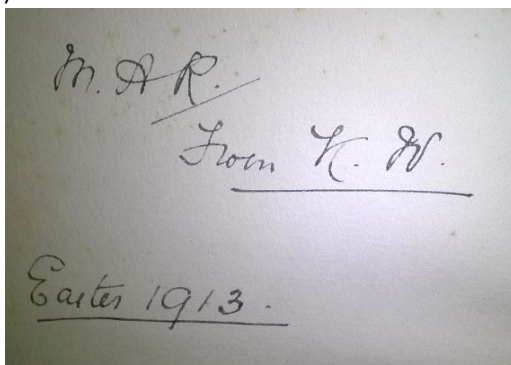 M. A R.
From K. W.
Easter 1913.